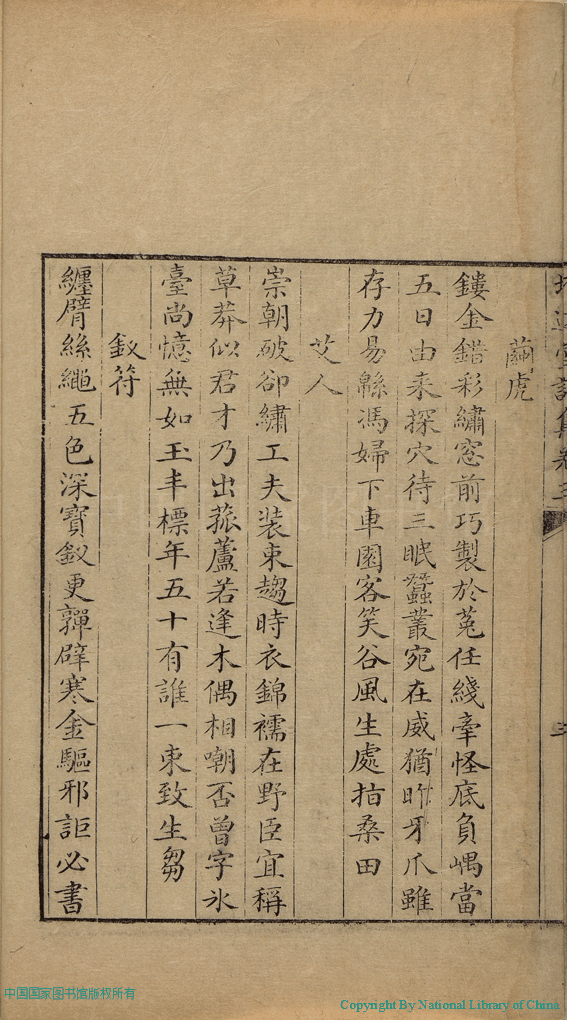 堂詩集卷三
繭虎
鏤金錯彩繡窓前巧製於菟任綫牽怪底負嵎當
五日由來探穴待三眠蠶叢宛在威猶昨牙爪雖
存力易緜馮婦下車園客笑谷風生處指桑田
艾人
崇朝破卻繡工夫裝束趨時衣錦襦在野臣宜稱
草莽似君才乃出菰蘆若逢木偶相嘲否曾字氷
臺尚憶無如玉丰標年五十有誰一束致生芻
釵符
纏臂絲繩五色深寶釵更嚲辟寒金驅邪詎必書
中国国家图书馆版权所有
Copyright By National Library of China